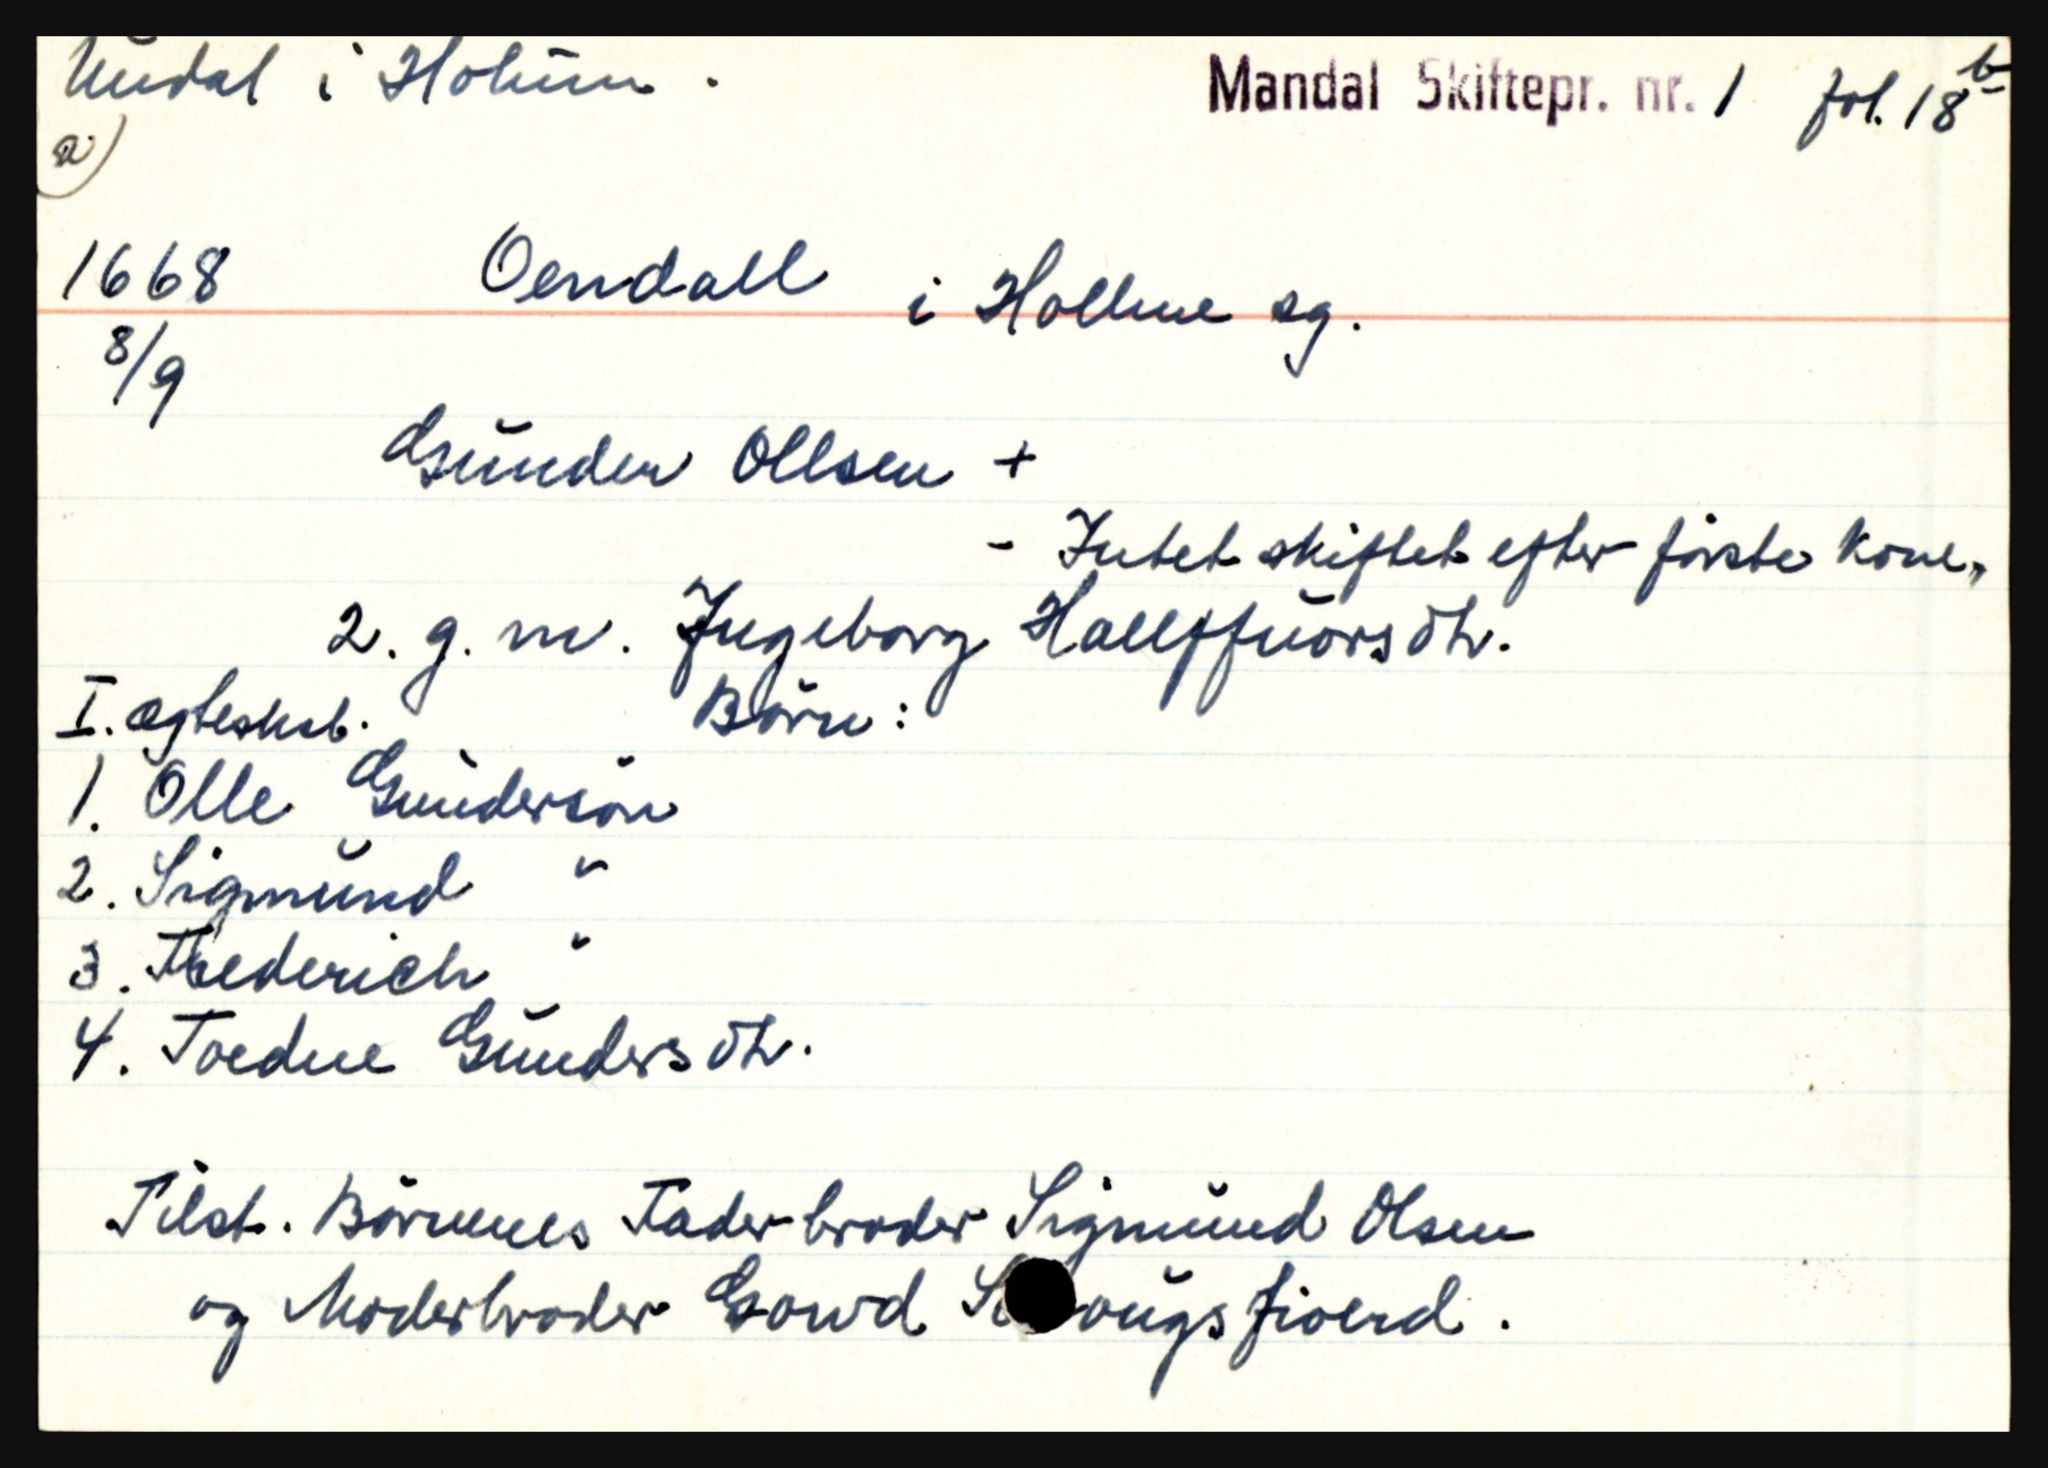 Undal i Holum. Mandal Skiftepr. nr. 1 fol. 18b
a)
1668 Oendall i Hollme sg.
8/9
Gunder Ollsen +
- Intet skiftet efter første kone,
2. g. m. Ingeborg Hallffuorsdtr.
I. ægteskab. Børn:
1. Olle Gundersøn
2. Sigmund "
3. Frederich "
4. Toedne Gundersdtr.
Tilst. Børnenes Faderbroder Sigmund Olsen
og Moderbroder Gowd